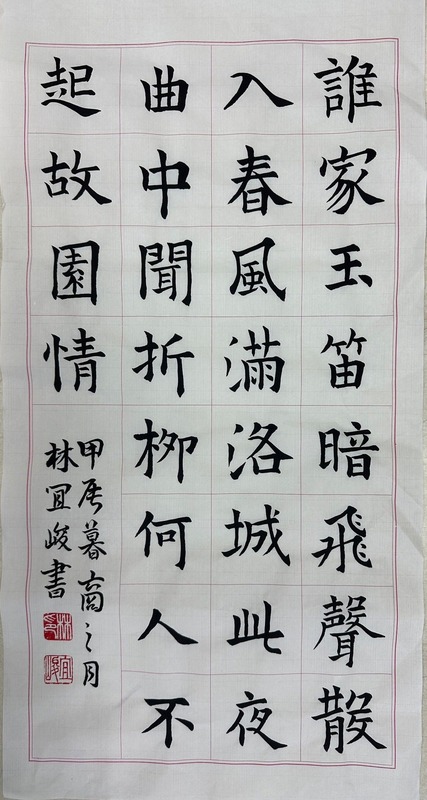 誰家玉笛暗飛聲散
入春風滿洛城此夜
曲中聞折柳何人不
起故園情
甲辰暮商之月
林宜峻書
林印
宜峻